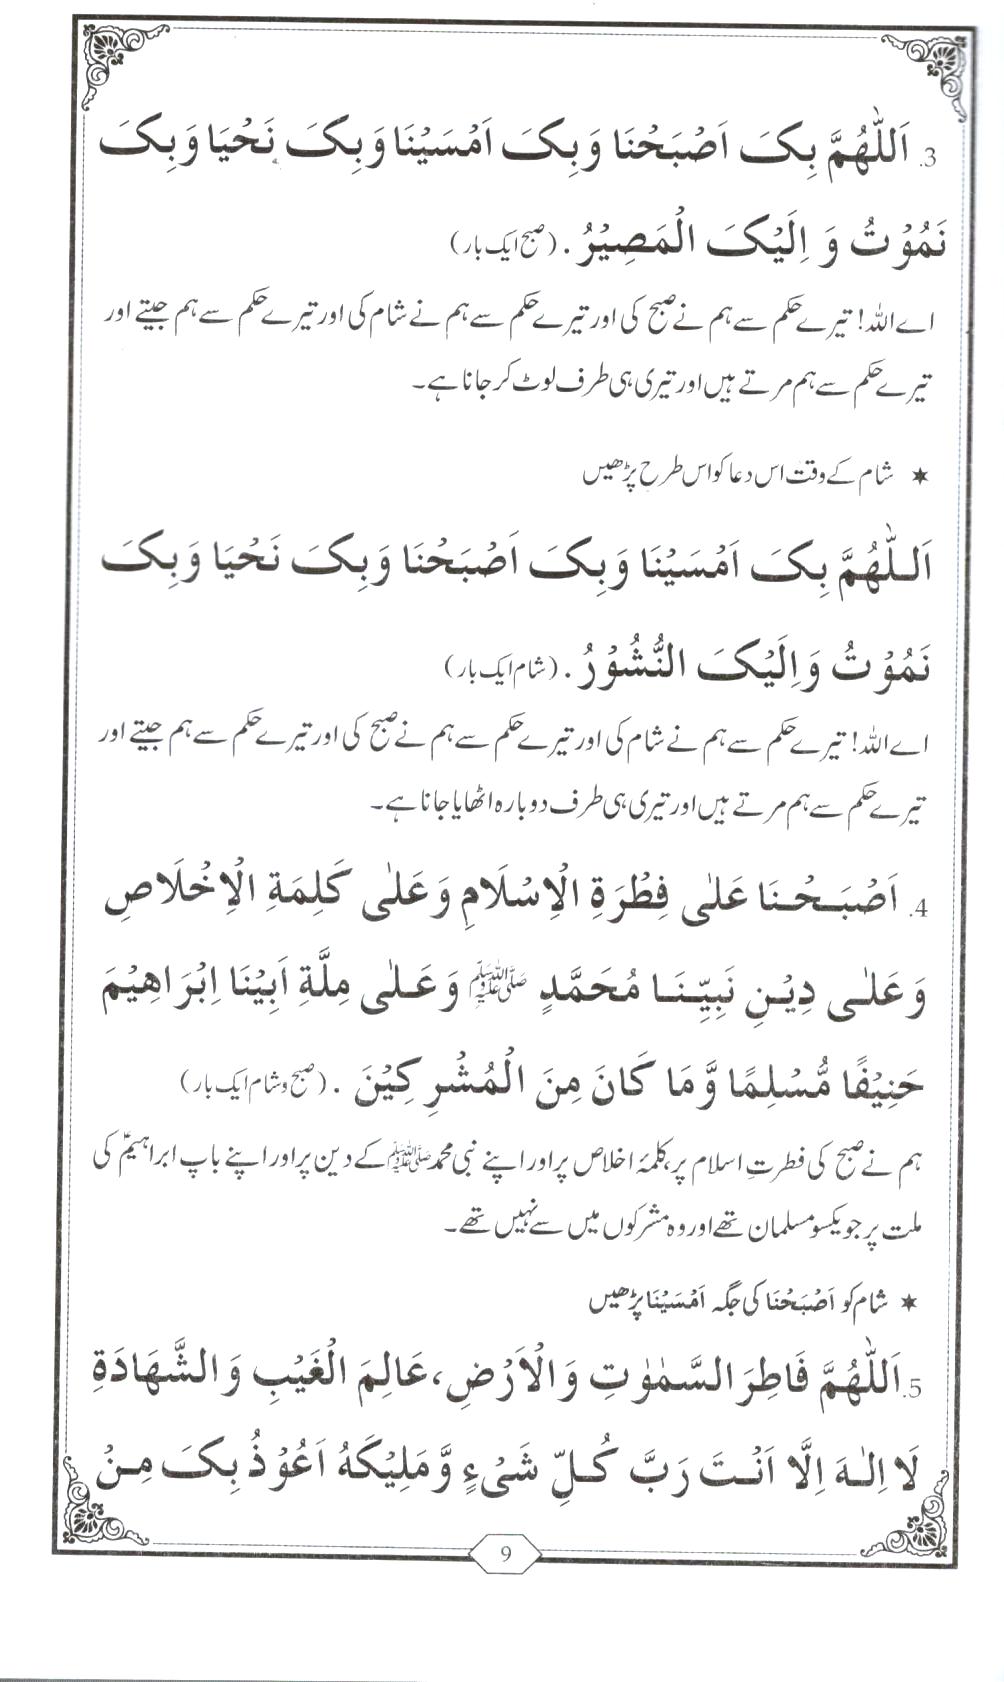 3. اَللّٰهُمَّ بِکَ اَصْبَحْنَا وَبِکَ اَمْسَیْنَا وَبِکَ نَحْیَا وَبِکَ
نَمُوْتُ وَ اِلَیْکَ الْمَصِیْرُ . (صبح ایک بار)
اے اللہ! تیرے حکم سے ہم نے صبح کی اور تیرے حکم سے ہم نے شام کی اور تیرے حکم سے ہم جیتے اور
تیرے حکم سے ہم مرتے ہیں اور تیری ہی طرف لوٹ کر جانا ہے۔
٭ شام کے وقت اس دعا کو اس طرح پڑھیں
اَللّٰهُمَّ بِکَ اَمْسَیْنَا وَبِکَ اَصْبَحْنَا وَبِکَ نَحْیَا وَبِکَ
نَمُوْتُ وَاِلَیْکَ النُّشُوْرُ . (شام ایک بار)
اے اللہ! تیرے حکم سے ہم نے شام کی اور تیرے حکم سے ہم نے صبح کی اور تیرے حکم سے ہم جیتے اور
تیرے حکم سے ہم مرتے ہیں اور تیری ہی طرف دوبارہ اٹھایا جانا ہے۔
4. اَصْبَحْنَا عَلٰی فِطْرَةِ الْاِسْلَامِ وَعَلٰی کَلِمَةِ الْاِخْلَاصِ
وَعَلٰی دِیْنِ نَبِیِّنَا مُحَمَّدٍ ﷺ وَعَلٰی مِلَّةِ اَبِیْنَا اِبْرَاهِیْمَ
حَنِیْفًا مُّسْلِمًا وَّمَا کَانَ مِنَ الْمُشْرِکِیْنَ . (صبح و شام ایک بار)
ہم نے صبح کی فطرتِ اسلام پر، کلمۂ اخلاص پر اور اپنے نبی محمد ﷺ کے دین پر اور اپنے باپ ابراہیمؑ کی
ملت پر جو یکسو مسلمان تھے اور وہ مشرکوں میں سے نہیں تھے۔
٭ شام کو اَصْبَحْنَا کی جگہ اَمْسَیْنَا پڑھیں
5. اَللّٰهُمَّ فَاطِرَ السَّمٰوٰتِ وَالْاَرْضِ، عَالِمَ الْغَیْبِ وَالشَّهَادَةِ
لَا اِلٰهَ اِلَّا اَنْتَ رَبَّ کُلِّ شَیْءٍ وَّمَلِیْکَهُ اَعُوْذُ بِکَ مِنْ
9